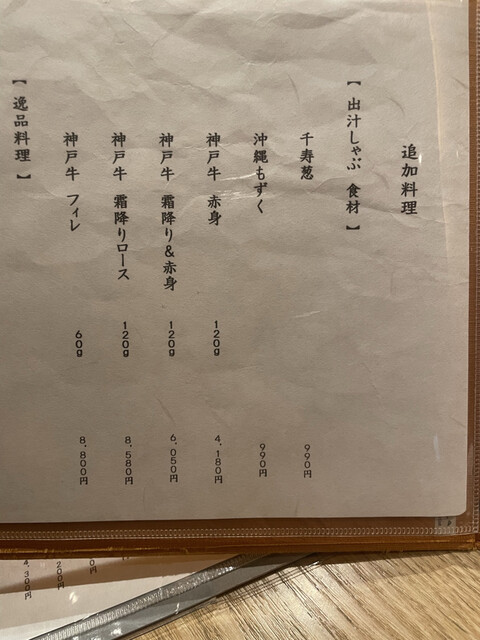 追加料理
【 出汁しゃぶ 食材 】
千寿葱 990円
沖縄もずく 990円
神戸牛 赤身 120g 4,180円
神戸牛 霜降り&赤身 120g 6,050円
神戸牛 霜降りロース 120g 8,580円
神戸牛 フィレ 60g 8,800円
【 逸品料理 】
200円
4,300円